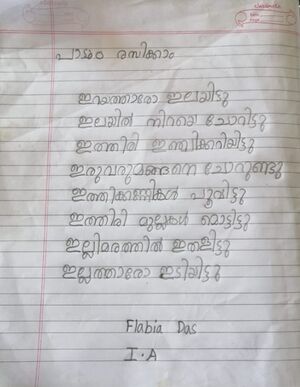 classmate
പാടാം രസിക്കാം
ഇറയത്താരോ ഇലയിട്ടു
ഇലയിൽ നിറയെ ചോറിട്ടു
ഇത്തിരി ഇഞ്ചിക്കറിയിട്ടു
ഇരുവരുമങ്ങനെ ചോറുണ്ടു
ഇത്തിക്കണ്ണികൾ പൂവിട്ടു
ഇത്തിരി മുല്ലകൾ മൊട്ടിട്ടു
ഇല്ലിമരത്തിൽ ഇതളിട്ടു
ഇല്ലത്താരോ ഇടിയിട്ടു
Flabia Das
I.A